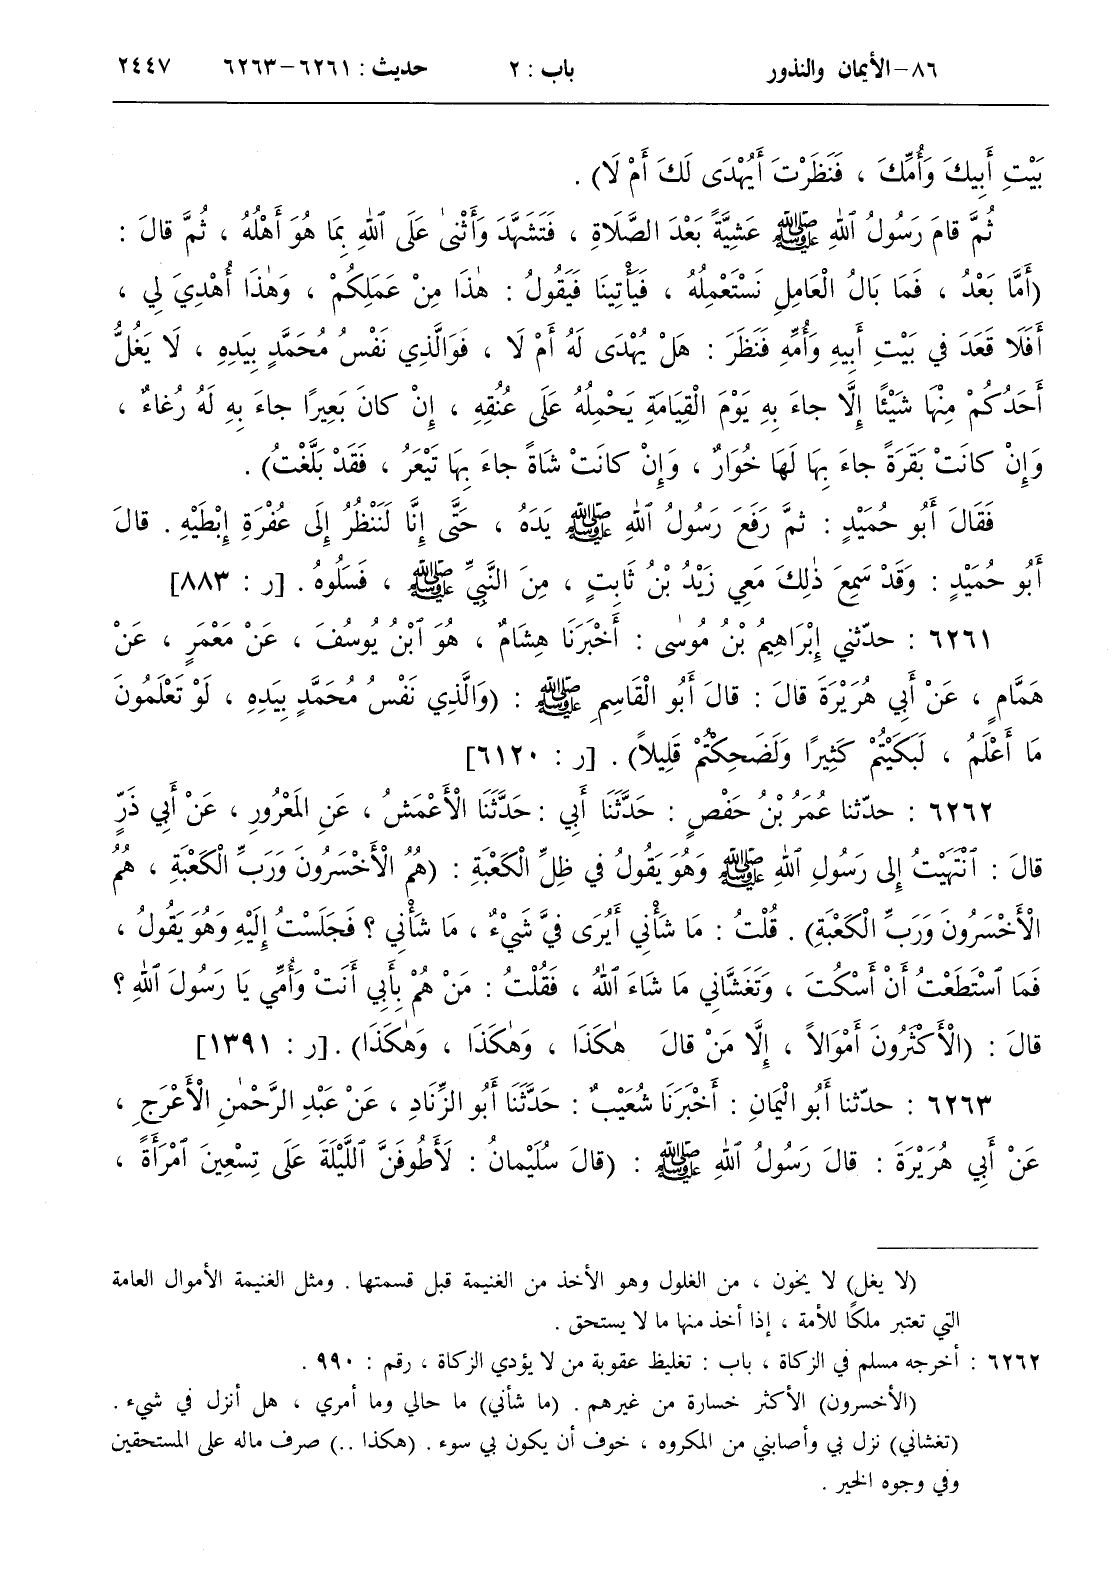 ٨٦-الأيمان والنذور باب : ٢ حديث : ٦٢٦١-٦٢٦٣ ٢٤٤٧
بَيْتِ أَبِيكَ وَأُمِّكَ ، فَنَظَرْتَ أَيُهْدَى لَكَ أَمْ لَا) .
ثُمَّ قامَ رَسُولُ ٱللهِ ﷺ عَشِيَّةً بَعْدَ الصَّلَاةِ ، فَتَشَهَّدَ وَأَثْنىٰ عَلَى ٱللهِ بِمَا هُوَ أَهْلُهُ ، ثُمَّ قالَ :
(أَمَّا بَعْدُ ، فَمَا بَالُ الْعَامِلِ نَسْتَعْمِلُهُ ، فَيَأْتِينَا فَيَقُولُ : هٰذَا مِنْ عَمَلِكُمْ ، وَهٰذَا أُهْدِيَ لِي ،
أَفَلَا قَعَدَ في بَيْتِ أَبِيهِ وَأُمِّهِ فَنَظَرَ : هَلْ يُهْدَى لَهُ أَمْ لَا ، فَوَالَّذِي نَفْسُ مُحَمَّدٍ بِيَدِهِ ، لَا يَغُلُّ
أَحَدُكُمْ مِنْهَا شَيْئًا إِلَّا جاءَ بِهِ يَوْمَ الْقِيَامَةِ يَحْمِلُهُ عَلَى عُنُقِهِ ، إِنْ كانَ بَعِيرًا جاءَ بِهِ لَهُ رُغاءٌ ،
وَإِنْ كانَتْ بَقَرَةً جاءَ بِهَا لَهَا خُوَارٌ ، وَإِنْ كانَتْ شاةً جاءَ بِهَا تَيْعَرُ ، فَقَدْ بَلَّغْتُ) .
فَقَالَ أَبُو حُمَيْدٍ : ثمَّ رَفَعَ رَسُولُ ٱللهِ ﷺ يَدَهُ ، حَتَّى إِنَّا لَنَنْظُرُ إِلَى عُفْرَةِ إِبْطَيْهِ . قالَ
أَبُو حُمَيْدٍ : وَقَدْ سَمِعَ ذٰلِكَ مَعِي زَيْدُ بْنُ ثَابِتٍ ، مِنَ النَّبِيِّ ﷺ ، فَسَلُوهُ . [ر : ٨٨٣]
٦٢٦١ : حدّثني إِبْرَاهِيمُ بْنُ مُوسٰى : أَخْبَرَنَا هِشَامٌ ، هُوَ ٱبْنُ يُوسُفَ ، عَنْ مَعْمَرٍ ، عَنْ
هَمَّامٍ ، عَنْ أَبِي هُرَيْرَةَ قالَ : قالَ أَبُو الْقَاسِمِ ﷺ : (وَالَّذِي نَفْسُ مُحَمَّدٍ بِيَدِهِ ، لَوْ تَعْلَمُونَ
مَا أَعْلَمُ ، لَبَكَيْتُمْ كَثِيرًا وَلَضَحِكْتُمْ قَلِيلاً) . [ر : ٦١٢٠]
٦٢٦٢ : حدّثنا عُمَرُ بْنُ حَفْصٍ : حَدَّثَنَا أَبِي : حَدَّثَنَا الْأَعْمَشُ ، عَنِ المَعْرُورِ ، عَنْ أَبِي ذَرٍّ
قالَ : ٱنْتَهَيْتُ إِلى رَسُولِ ٱللهِ ﷺ وَهُوَ يَقُولُ في ظِلِّ الْكَعْبَةِ : (هُمُ الْأَخْسَرُونَ وَرَبِّ الْكَعْبَةِ ، هُمُ
الْأَخْسَرُونَ وَرَبِّ الْكَعْبَةِ) . قُلْتُ : مَا شَأْنِي أَيُرَى فِيَّ شَيْءٌ ، مَا شَأْنِي ؟ فَجَلَسْتُ إِلَيْهِ وَهُوَ يَقُولُ ،
فَمَا ٱسْتَطَعْتُ أَنْ أَسْكُتَ ، وَتَغَشَّانِي ما شَاءَ ٱللهُ ، فَقُلْتُ : مَنْ هُمْ بِأَبِي أَنْتَ وَأُمِّي يَا رَسُولَ ٱللهِ ؟
قالَ : (الْأَكْثَرُونَ أَمْوَالاً ، إِلَّا مَنْ قالَ هٰكَذَا ، وَهٰكَذَا ، وَهٰكَذَا) . [ر : ١٣٩١]
٦٢٦٣ : حدّثنا أَبُو الْيَمَانِ : أَخْبَرَنَا شُعَيْبٌ : حَدَّثَنَا أَبُو الزِّنَادِ ، عَنْ عَبْدِ الرَّحْمٰنِ الْأَعْرَجِ ،
عَنْ أَبِي هُرَيْرَةَ : قالَ رَسُولُ ٱللهِ ﷺ : (قالَ سُلَيْمانُ : لَأَطُوفَنَّ ٱللَّيْلَةَ عَلَى تِسْعِينَ ٱمْرَأَةً ،
(لا يغل) لا يخون ، من الغلول وهو الأخذ من الغنيمة قبل قسمتها . ومثل الغنيمة الأموال العامة
التي تعتبر ملكًا للأمة ، إذا أخذ منها ما لا يستحق .
٦٢٦٢ : أخرجه مسلم في الزكاة ، باب : تغليظ عقوبة من لا يؤدي الزكاة ، رقم : ٩٩٠ .
(الأخسرون) الأكثر خسارة من غيرهم . (ما شأني) ما حالي وما أمري ، هل أنزل في شيء .
(تغشاني) نزل بي وأصابني من المكروه ، خوف أن يكون بي سوء . (هكذا ..) صرف ماله على المستحقين
وفي وجوه الخير .